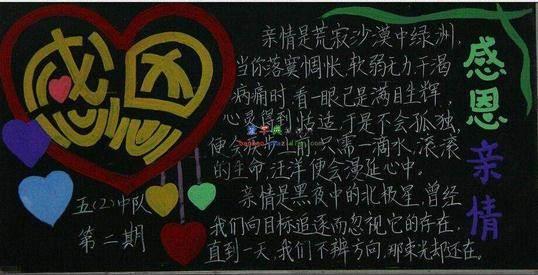 感恩
五(2)中队
第二期
亲情是荒寂沙漠中绿洲,
当你落寞惆怅,软弱无力干渴
病痛时,看一眼已是满目生辉,
心灵得到 于是不会孤独,
便会 只需一滴水,滚滚
的生命,汪洋便会漫延心中。
亲情是黑夜中的北极星,曾经
我们向目标追逐而忽视它的存在,
直到一天,我们不辨方向,那束光却还在。
感恩亲情